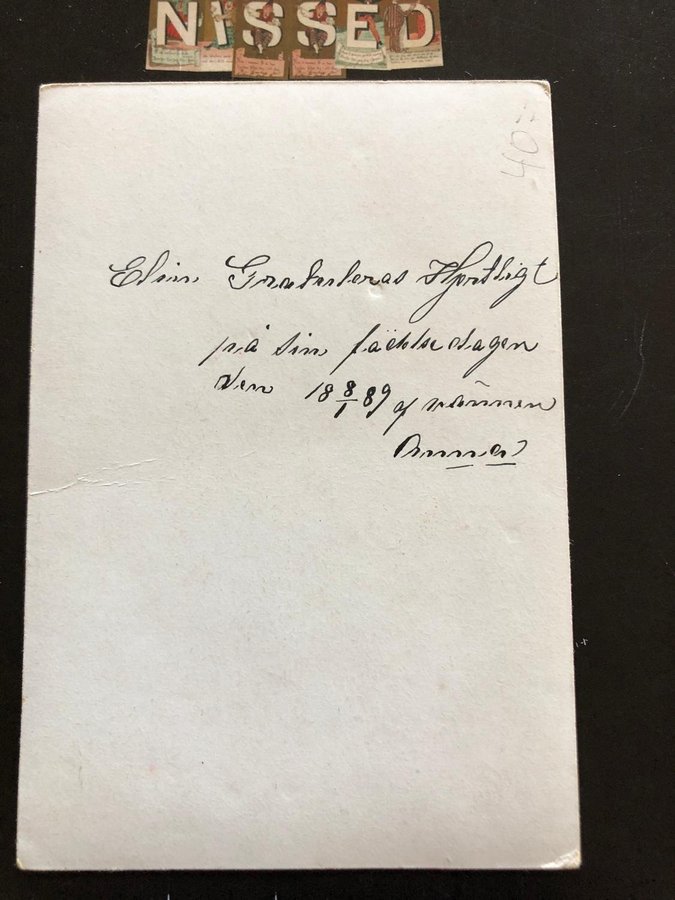 NISSED
40:-
Elin Gratuleras Hjertligt
på sin födelsedagen
den 18 8/1 89 af vännen
Anna